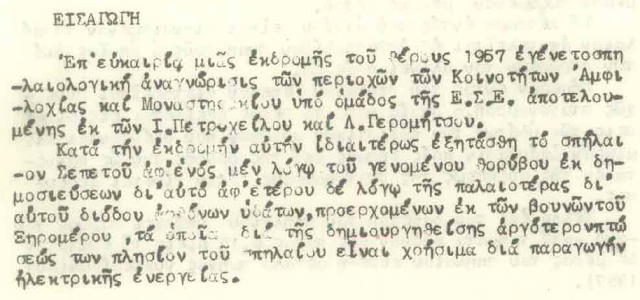 ΕΙΣΑΓΩΓΗ
Ἐπ' εὐκαιρίᾳ μιᾶς ἐκδρομῆς τοῦ θέρους 1957 ἐγένετοσπη
-λαιολογική ἀναγνώρισις τῶν περιοχῶν τῶν Κοινοτήτων Ἀμφι
-λοχίας καί ὑπό ὁμάδος τῆς Ε.Σ.Ε. ἀποτελου-
μένης ἐκ τῶν Ι.Πετροχείλου καί Λ.Γερομήτσου.
Κατά τήν ἐκδρομήν αὐτήν ἰδιαιτέρως ἐξητάσθη τό σπήλαι-
ον Σεπετοῦ ἀφ'ἑνός μέν λόγῳ τοῦ γενομένου θορύβου ἐκ δη-
μοσιεύσεων δι'αὐτό ἀφ'ἑτέρου δέ λόγῳ τῆς παλαιοτέρας δι'
αὐτοῦ διόδου ὑδάτων,προερχομένων ἐκ τῶν βουνῶντοῦ
Ξηρομέρου ,τά ὁποῖα διά τῆς δημιουργηθείσης ἀργότερονπτώ
σεώς των πλησίον τοῦ σπηλαίου εἶναι χρήσιμα διά παραγωγήν
ἠλεκτρικῆς ἐνεργείας.